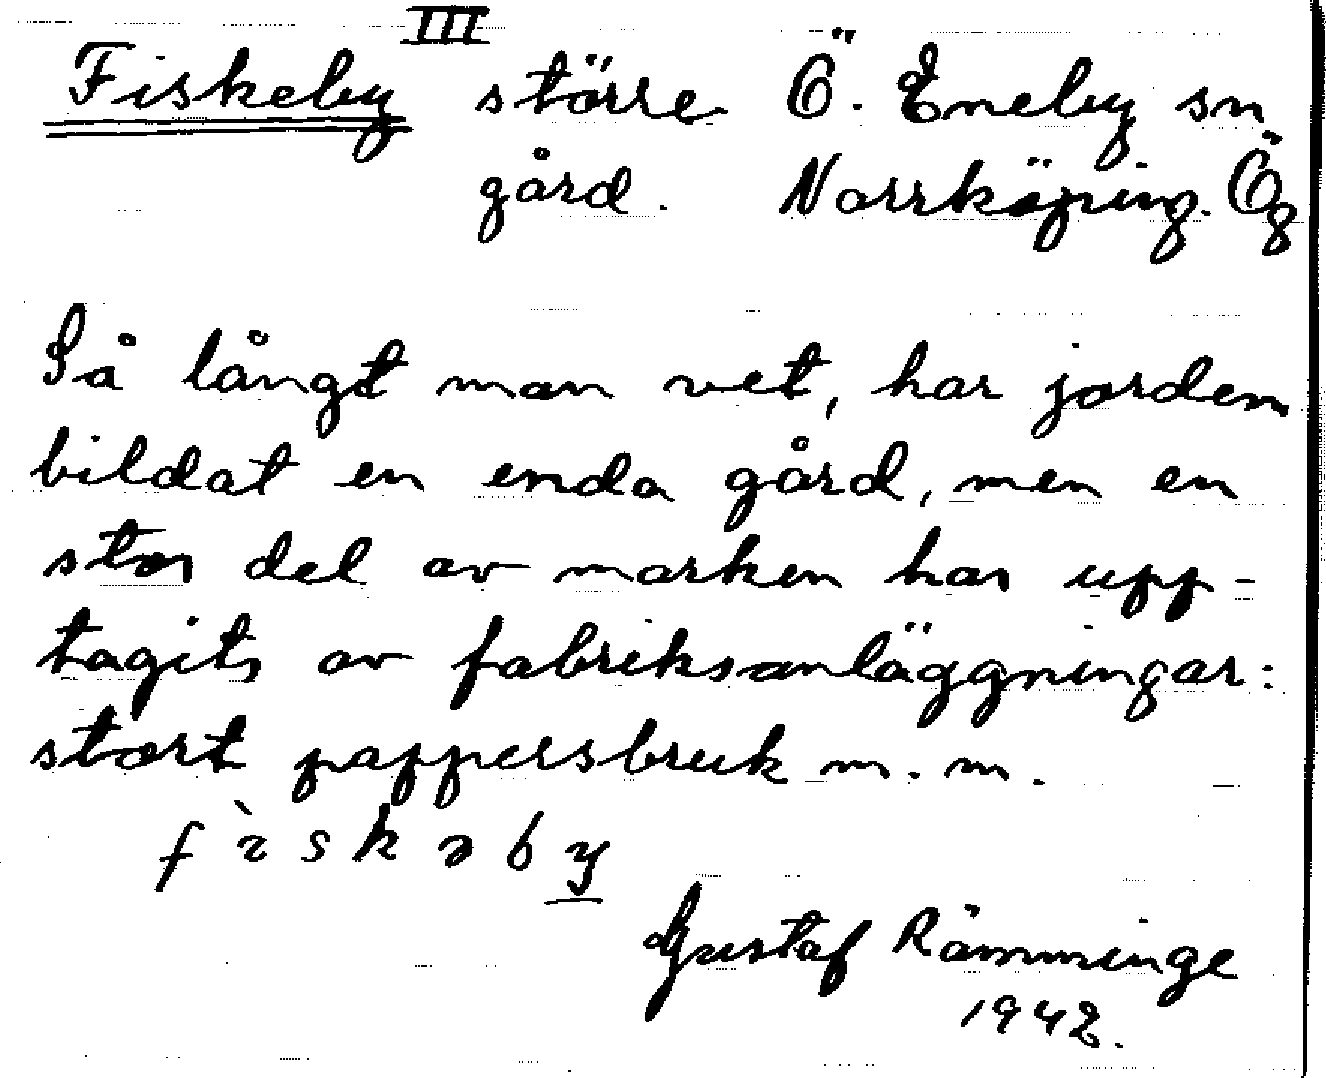 III
Fiskeby större Ö. Eneby sn
gård. Norrköping. Ög
Så långt man vet, har jorden
bildat en enda gård, men en
stor del av marken har upp-
tagits av fabriksanläggningar:
stort pappersbruk m. m.
fìskəby
Gustaf Rämminge
1942.